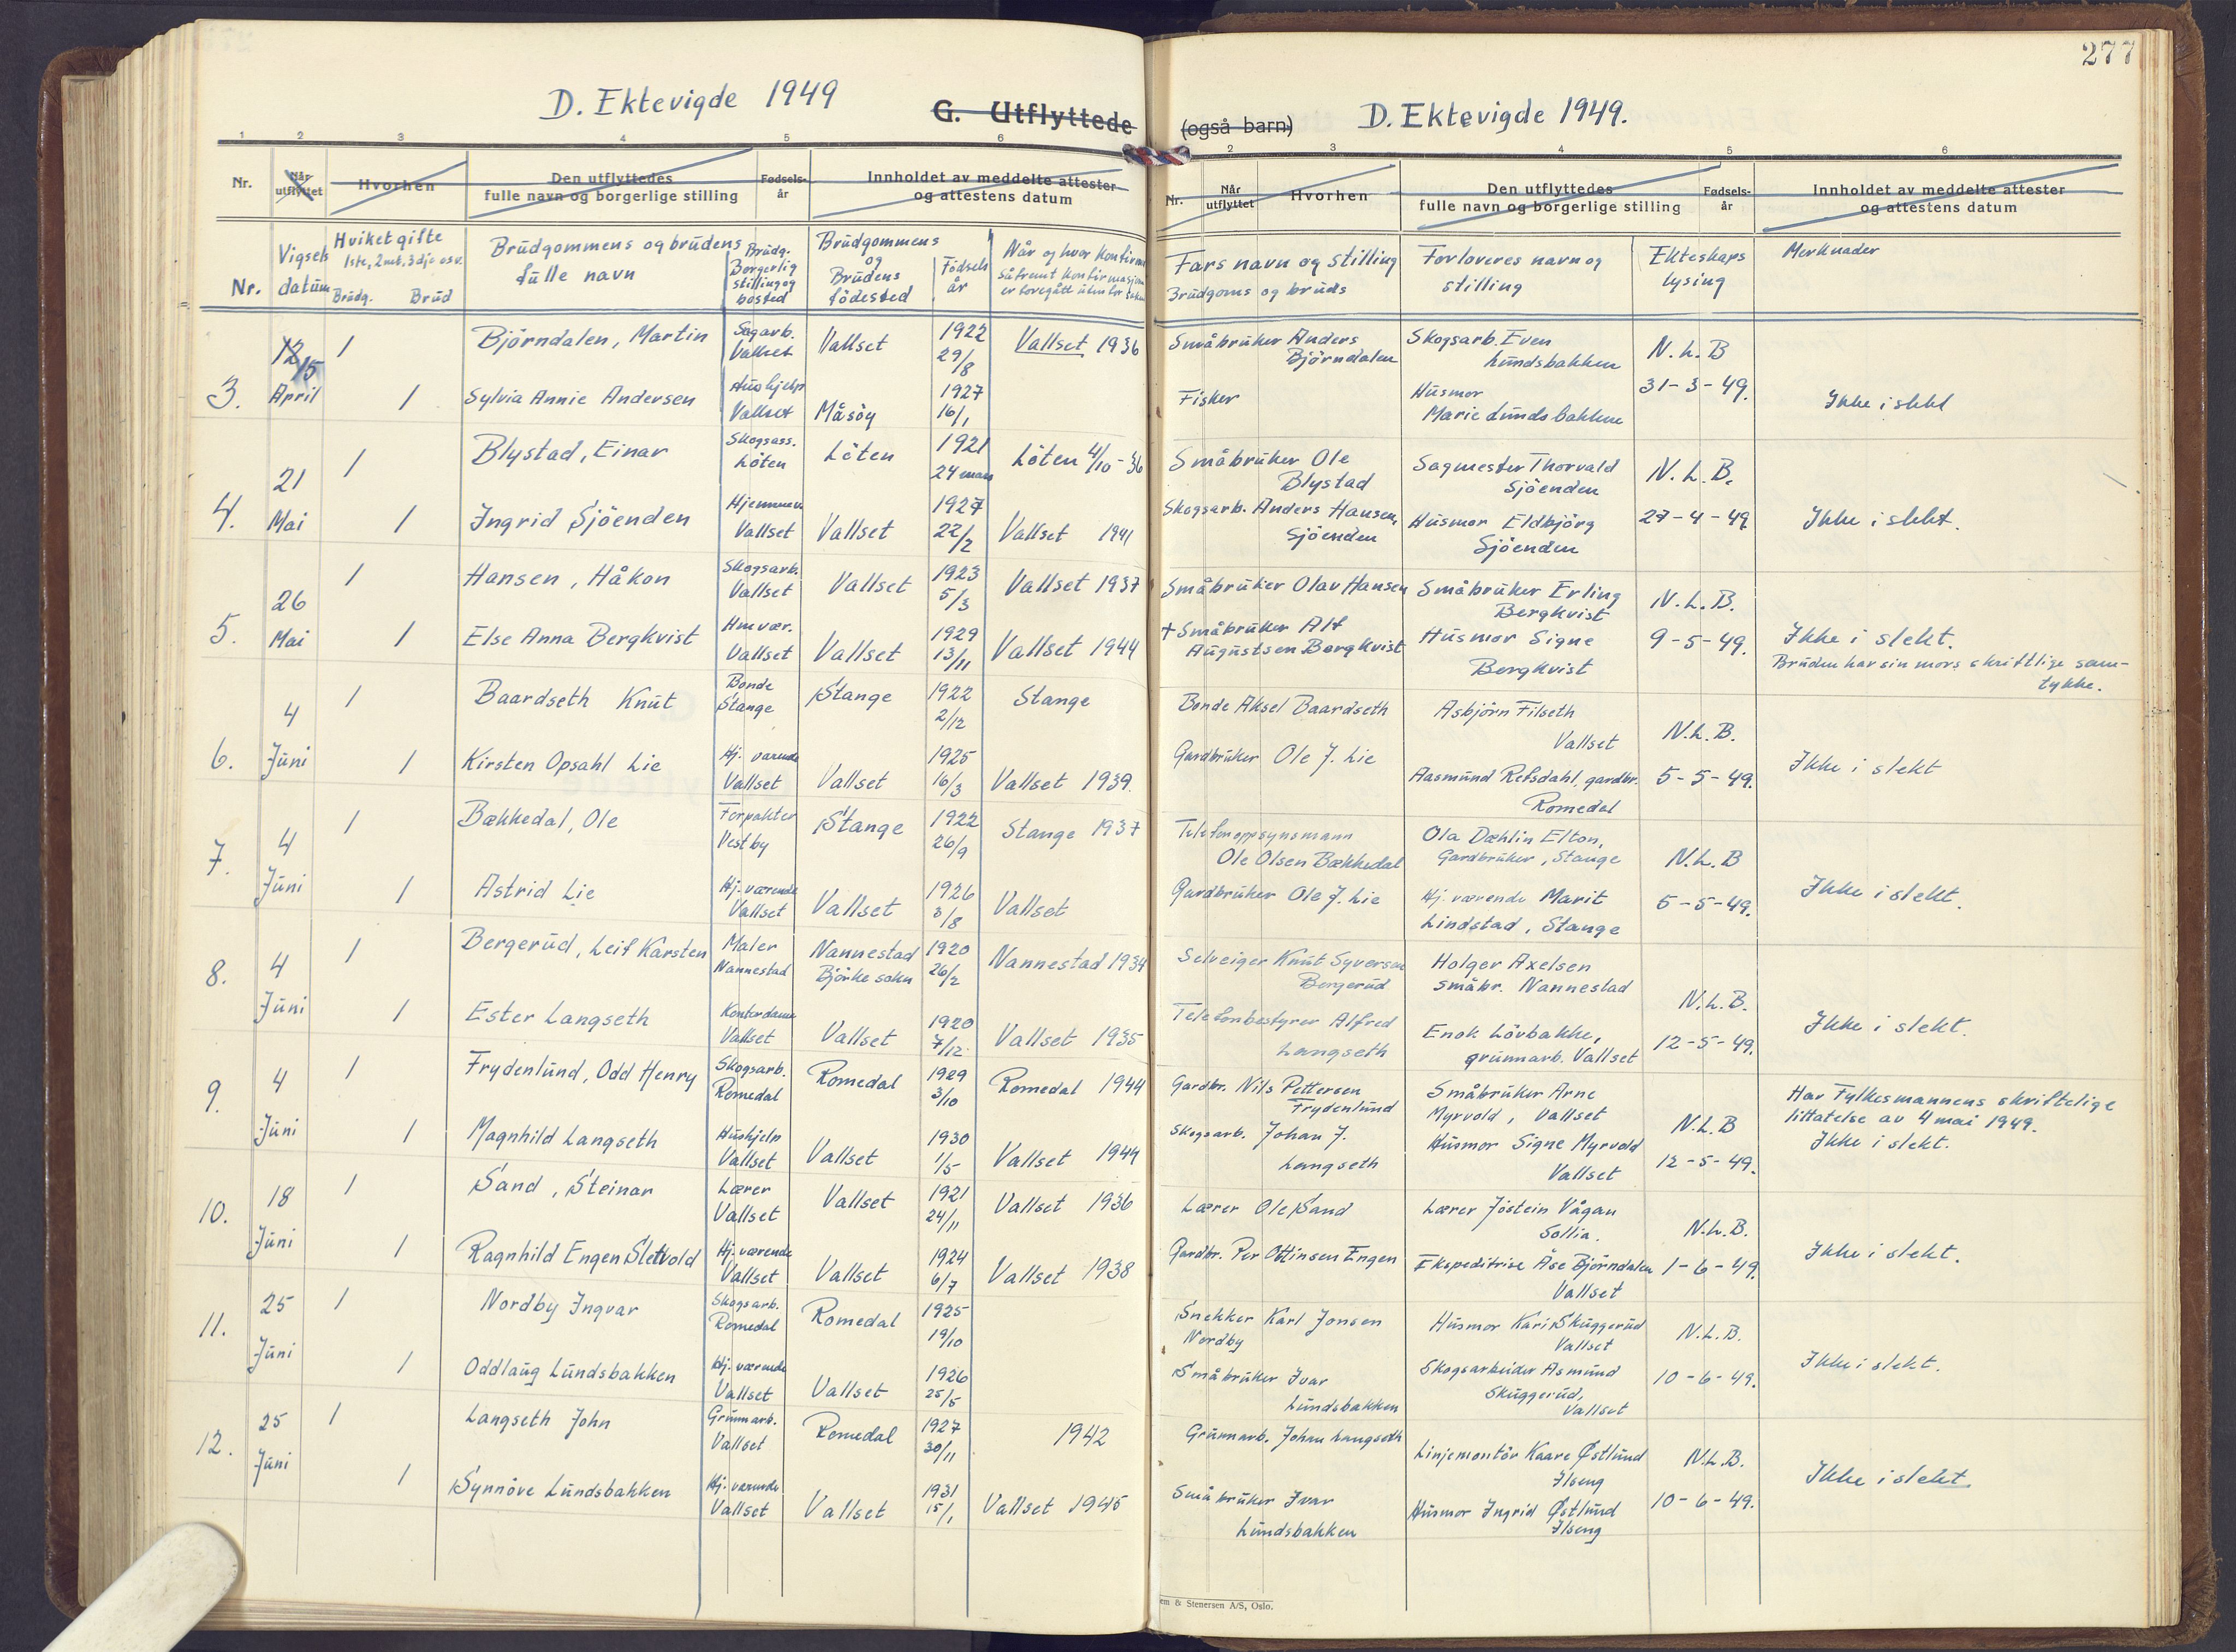 277
D. Ektevigde 1949
G. Utflyttede
(også barn)
D. Ektevigde 1949.
1 2 3 4 5 6
2 3 4 5 6
Nr. Når utflyttet Hvorhen Den utflyttedes fulle navn og borgerlige stilling Fødsels-år Innholdet av meddelte attester og attestens datum
Nr. Når utflyttet Hvorhen Den utflyttedes fulle navn og borgerlige stilling Fødsels-år Innholdet av meddelte attester og attestens datum
Nr. Vigsels datum Hvilket gifte 1ste, 2net, 3dje osv. Brudg. Brud
Brudgommens og brudens fulle navn
Brudg. Borgerlig stilling og bosted
Brudgommens og Brudens födested
Födsels år
Når og hvor konfirm
såfremt konfirmasjon
er foregått utenfor
Fars navn og stilling
Brudgoms og bruds
Forloveres navn og stilling
Ekteskaps lysing
Merknader
3. 12/15 April
1 Björndalen, Martin Sagarb. Vallset Vallset 1922 29/8 Vallset 1936
Småbruker Anders Björndalen
Skogsarb. Even Lundsbakken
N. L. B
1 Sylvia Annie Andersen Hushjelp Vallset Måsöy 1927 16/1
Fisker
Husmor Marie Lundsbakken
31-3-49.
Ikke i slekt
4. 21 Mai
1 Blystad, Einar Skogsass. Löten Löten 1921 24 Löten 4/10-36
Småbruker Ole Blystad
Sagmester Thorvald Sjöenden
N. L. B.
1 Ingrid Sjöenden Vallset Vallset 1927 22/2 Vallset 1941
Skogsarb. Anders Hansen, Sjöenden
Husmor Eldbjörg Sjöenden
27-4-49
Ikke i slekt.
5. 26 Mai
1 Hansen, Håkon Skogsarb. Vallset Vallset 1923 5/3 Vallset 1937
Småbruker Olav Hansen
Småbruker Erling Bergkvist
N. L. B.
1 Else Anna Bergkvist Hmvær. Vallset Vallset 1929 13/11 Vallset 1944
+ Småbruker Alf Augustsen Bergkvist
Husmor Signe Bergkvist
9-5-49.
Ikke i slekt.
Bruden har sin mors skriftlige sam-
tykke.
6. 4 Juni
1 Baardseth Knut Bonde Stange Stange 1922 2/12 Stange
Bonde Aksel Baardseth
Asbjörn Filseth Vallset
N. L. B.
1 Kirsten Opsahl Lie Hj. værende Vallset Vallset 1925 16/3 Vallset 1939.
Gardbruker Ole J. Lie
Aasmund Refsdahl, gardbr. Romedal
5-5-49.
Ikke i slekt
7. 4 Juni
1 Bækkedal, Ole Forpakter Vestby Stange 1922 26/9 Stange 1937
Telefonoppsynsmann Ole Olsen Bækkedal
Ola Dæhlin Elton, Gardbruker, Stange
N. L. B
1 Astrid Lie Hj. værende Vallset Vallset 1926 3/8 Vallset
Gardbruker Ole J. Lie
Hj. værende Marit Lindstad, Stange
5-5-49.
Ikke i slekt.
8. 4 Juni
1 Bergerud, Leif Karsten Maler Nannestad Nannestad Björke sokn 1920 26/2 Nannestad 1934
Selveiger Knut Syversen Bergerud
Holger Axelsen småbr. Nannestad
N. L. B.
1 Ester Langseth Kontordame Vallset Vallset 1920 7/12 Vallset 1935
Telefonbestyrer Alfred Langseth
Enok Lövbakke, grunnarb. Vallset
12-5-49.
Ikke i slekt.
9. 4 Juni
1 Frydenlund, Odd Henry Skogsarb. Romedal Romedal 1929 3/10 Romedal 1944
Gardbr. Nils Pettersen Frydenlund
Småbruker Arne Myrvold, Vallset
N. L. B
Har Fylkesmannens skriftelige
tillatelse av 4 mai 1949.
1 Magnhild Langseth Hushjelp Vallset Vallset 1930 1/5 Vallset 1944
Skogsarb. Johan J. Langseth
Husmor Signe Myrvold Vallset
12-5-49.
Ikke i slekt.
10. 18 Juni
1 Sand, Steinar Lærer Vallset Vallset 1921 24/11 Vallset 1936
Lærer Ole Sand
Lærer Jöstein Vågan Sollia.
N. L. B.
1 Ragnhild Engen Slettvold Hj. værende Vallset Vallset 1924 6/7 Vallset 1938
Gardbr. Per Ottinsen Engen
Ekspeditrise Åse Björndalen Vallset
1-6-49.
Ikke i slekt.
11. 25 Juni
1 Nordby Ingvar Skogsarb. Romedal Romedal 1925 19/10
Snekker Karl Jonsen Nordby
Husmor Kari Skuggerud Vallset
N. L. B.
1 Oddlaug Lundsbakken Hj. værende Vallset Vallset 1926 25/5
Småbruker Ivar Lundsbakken
Skogsarbeider Asmund Skuggerud, Vallset
10-6-49.
Ikke i slekt.
12. 25 Juni
1 Langseth John Grunnarb. Vallset Romedal 1927 30/11 1942
Grunnarb. Johan Langseth
Linjemontör Kaare Østlund Ilseng
N. L. B.
1 Synnöve Lundsbakken Hj. værende Vallset Vallset 1931 15/1 Vallset 1945
Småbruker Ivar Lundsbakken
Husmor Ingrid Østlund Ilseng
10-6-49.
Ikke i slekt
em & Stenersen A/S, Oslo.